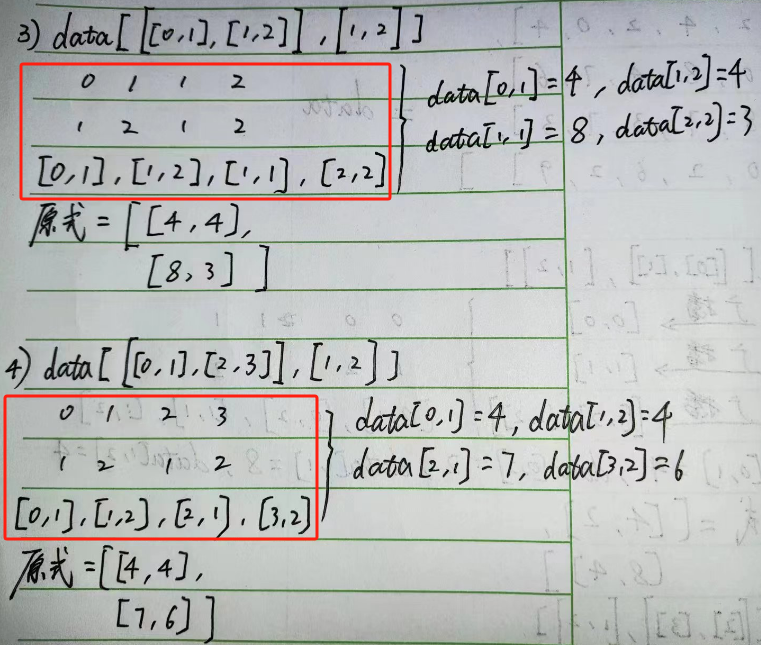 3) data[ [[0,1],[1,2]] , [1,2] ]
0 1 1 2
1 2 1 2
[0,1] , [1,2] , [1,1] , [2,2]
data[0,1]=4 , data[1,2]=4
data[1,1]=8 , data[2,2]=3
原式=[ [4,4],
[8,3] ]
4) data[ [[0,1],[2,3]] , [1,2] ]
0 1 2 3
1 2 1 2
[0,1] , [1,2] , [2,1] , [3,2]
data[0,1]=4 , data[1,2]=4
data[2,1]=7 , data[3,2]=6
原式=[[4,4],
[7,6] ]